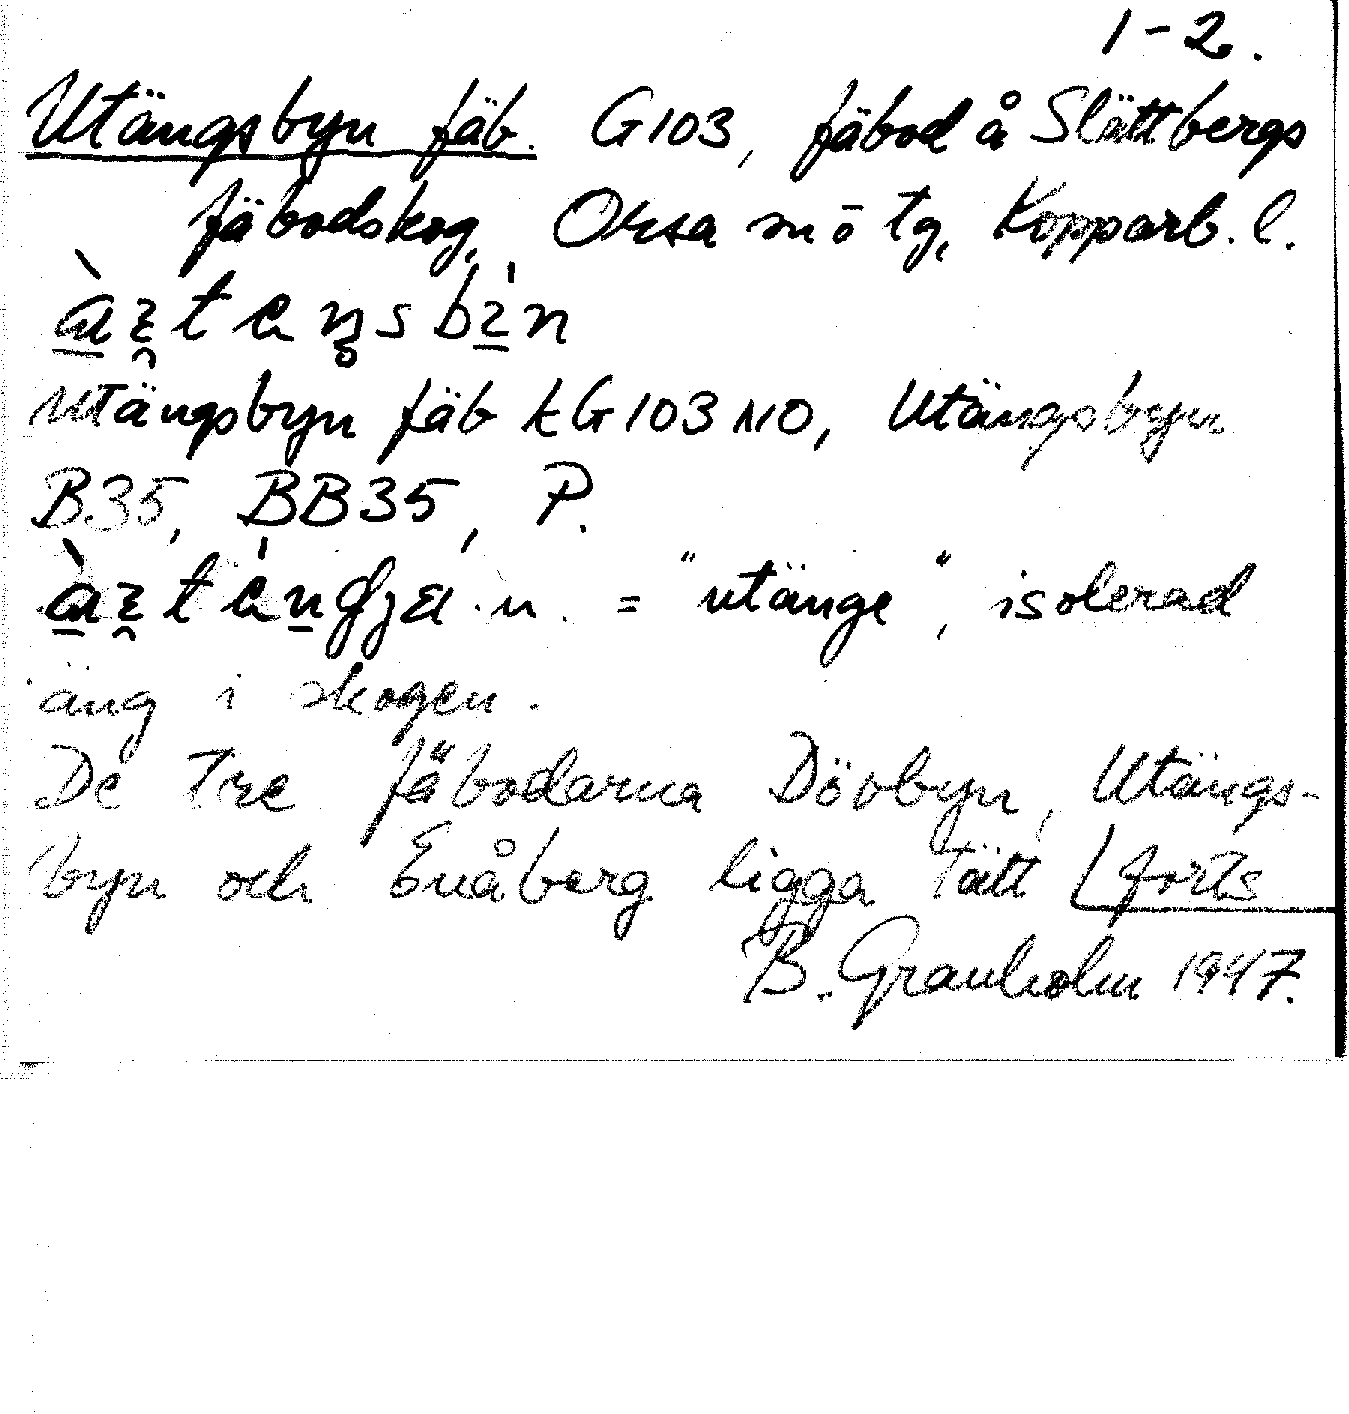 1-2.
Utängsbyn fäb. G103, fäbod å Slättbergs
fäbodskog, Orsa sn o tg, Kopparb. l.
Utängsbyn fäb kG103NO, Utängsbyn
B35, BB35, P.
n. = "utänge", isolerad
äng i skogen.
De tre fäbodarna Dövbyn, Utängs-
byn och Enåberg ligga tätt forts
B. Granholm 1947.